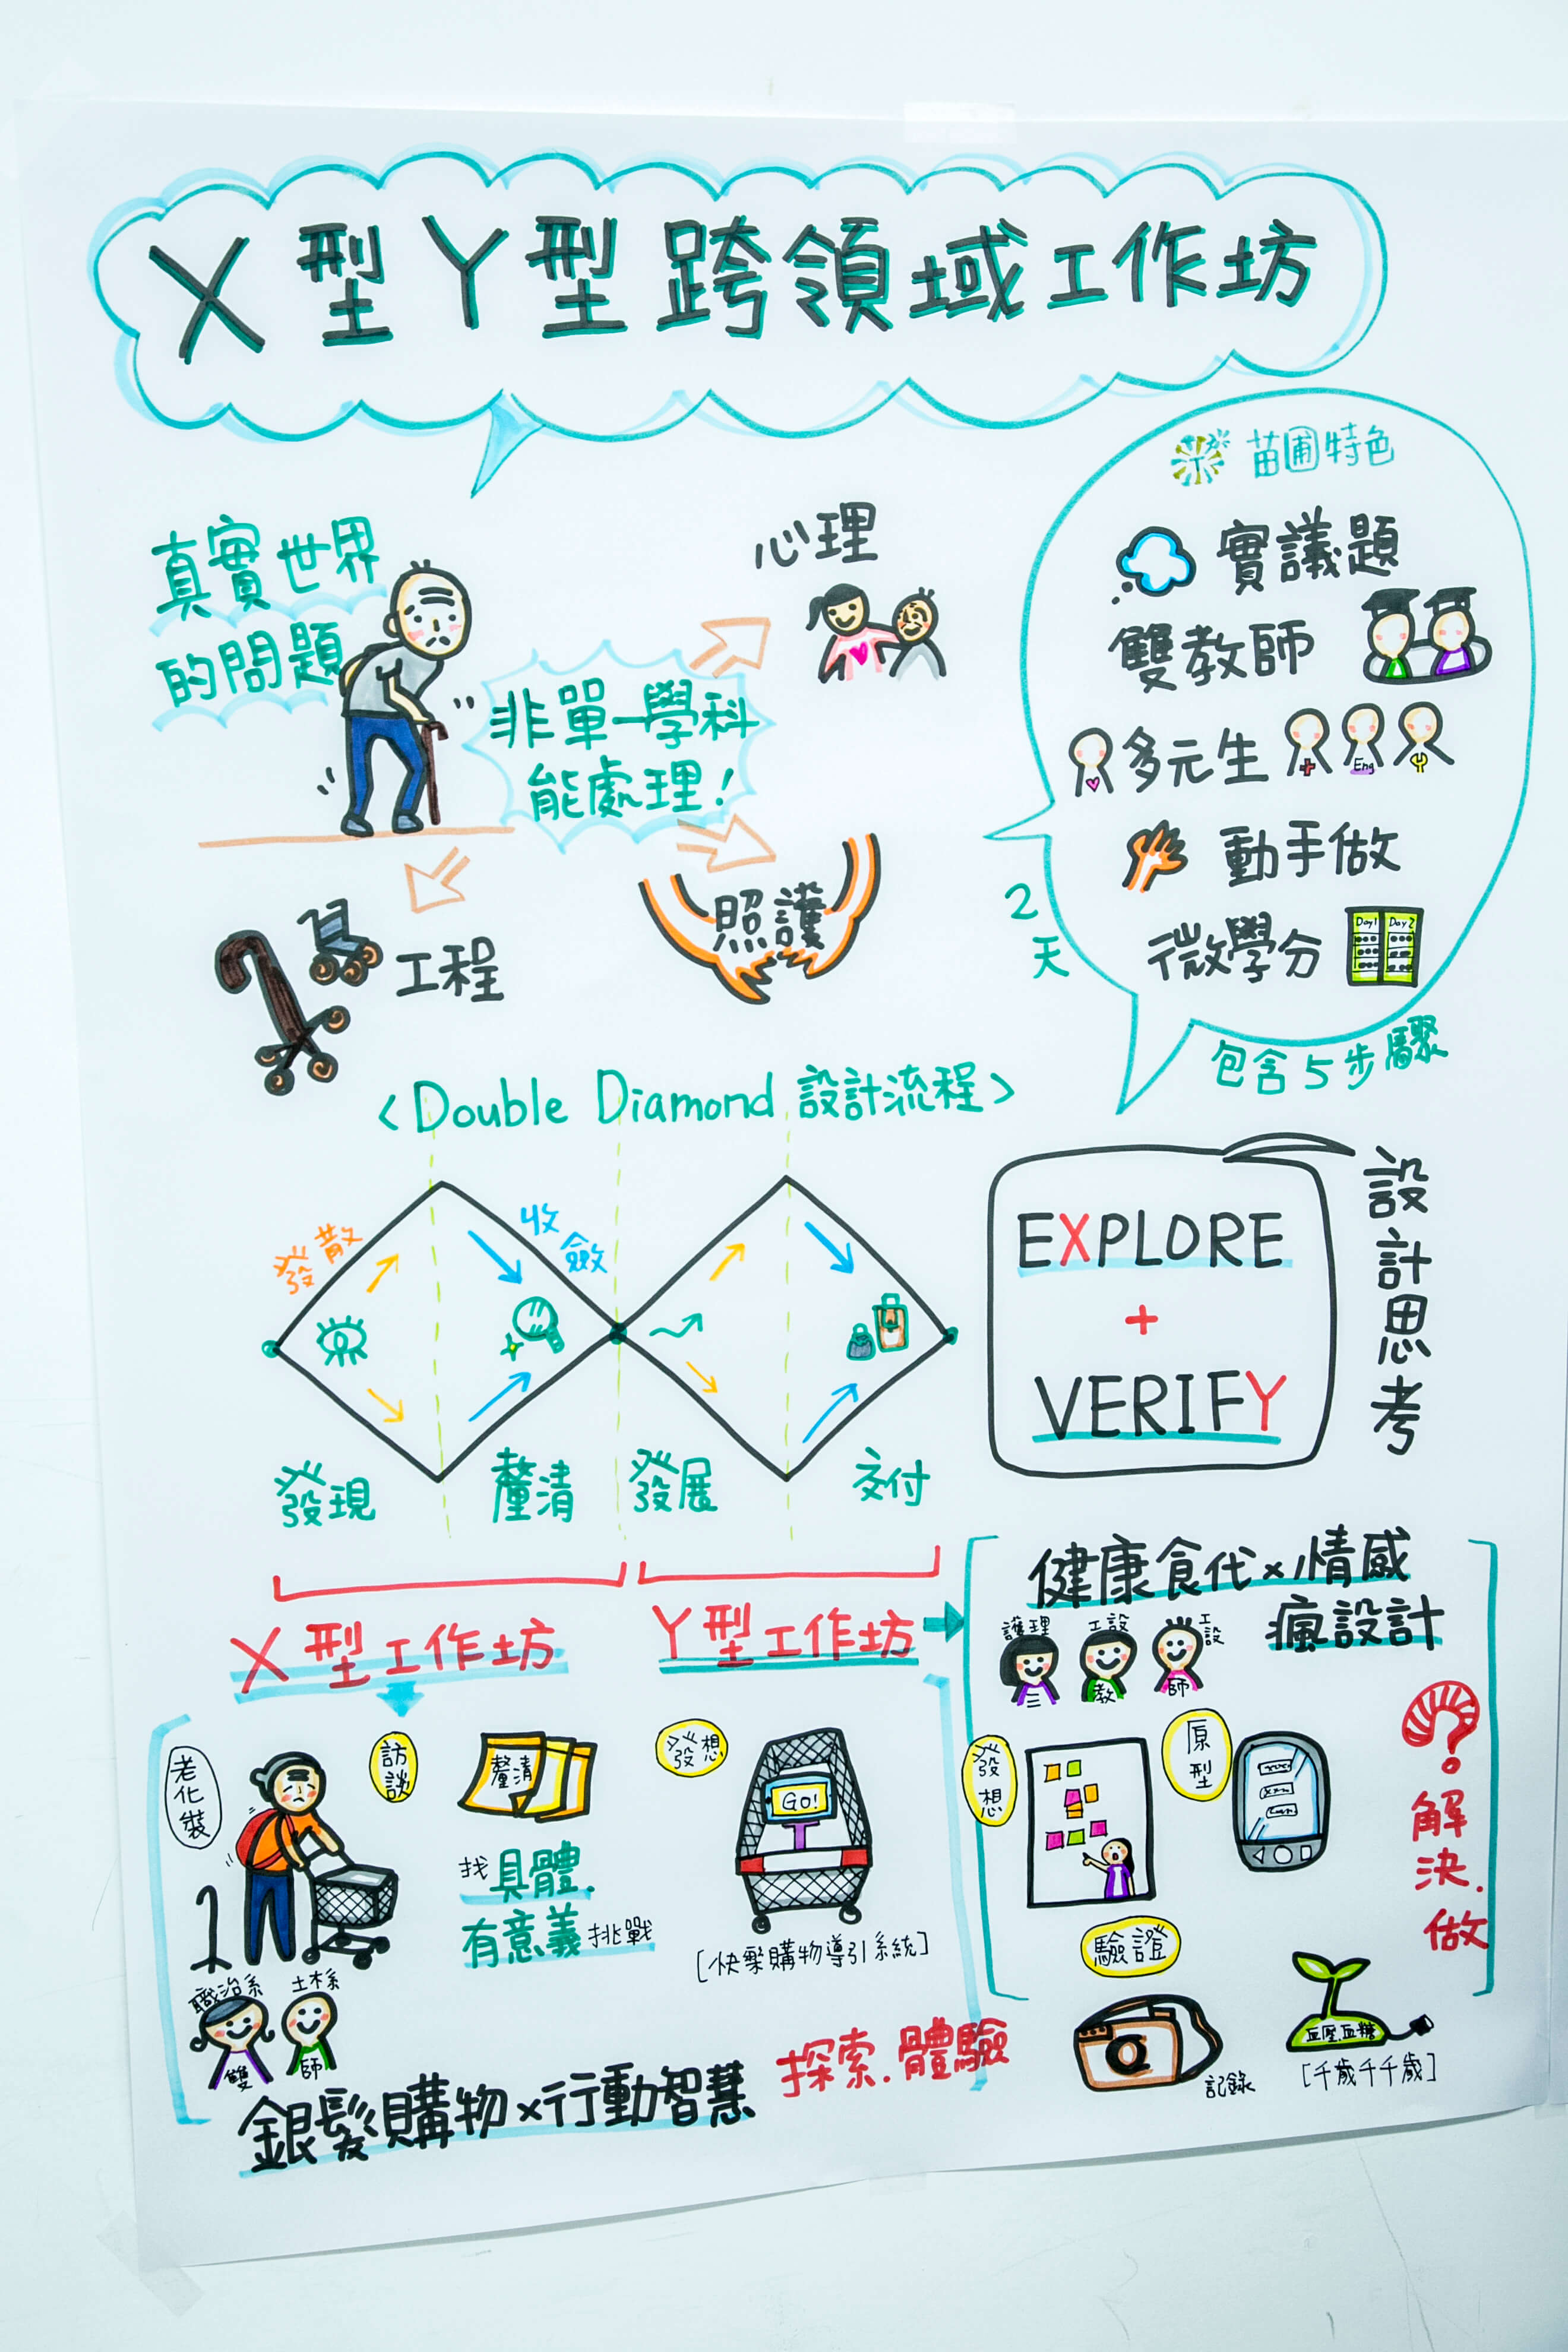 X型Y型跨領域工作坊
真實世界
的問題
非單一學科
能處理！
心理
照護
工程
苗圃特色
實議題
雙教師
多元生
Eng
動手做
微學分
Day1 Day2
2天
包含5步驟
<Double Diamond 設計流程>
發散
收斂
發現
釐清
發展
交付
EXPLORE
+
VERIFY
設計思考
X型工作坊
Y型工作坊
老化裝
訪談
釐清
找具體.
有意義挑戰
發想
GO!
[快樂購物導引系統]
職治系
土木系
雙
師
銀髮購物×行動智慧
探索.體驗
健康食代×情感
瘋設計
護理
工設
工設
三
教
師
發想
原型
驗證
記錄
血壓.血糖
[千歲千千歲]
?
解決.
做